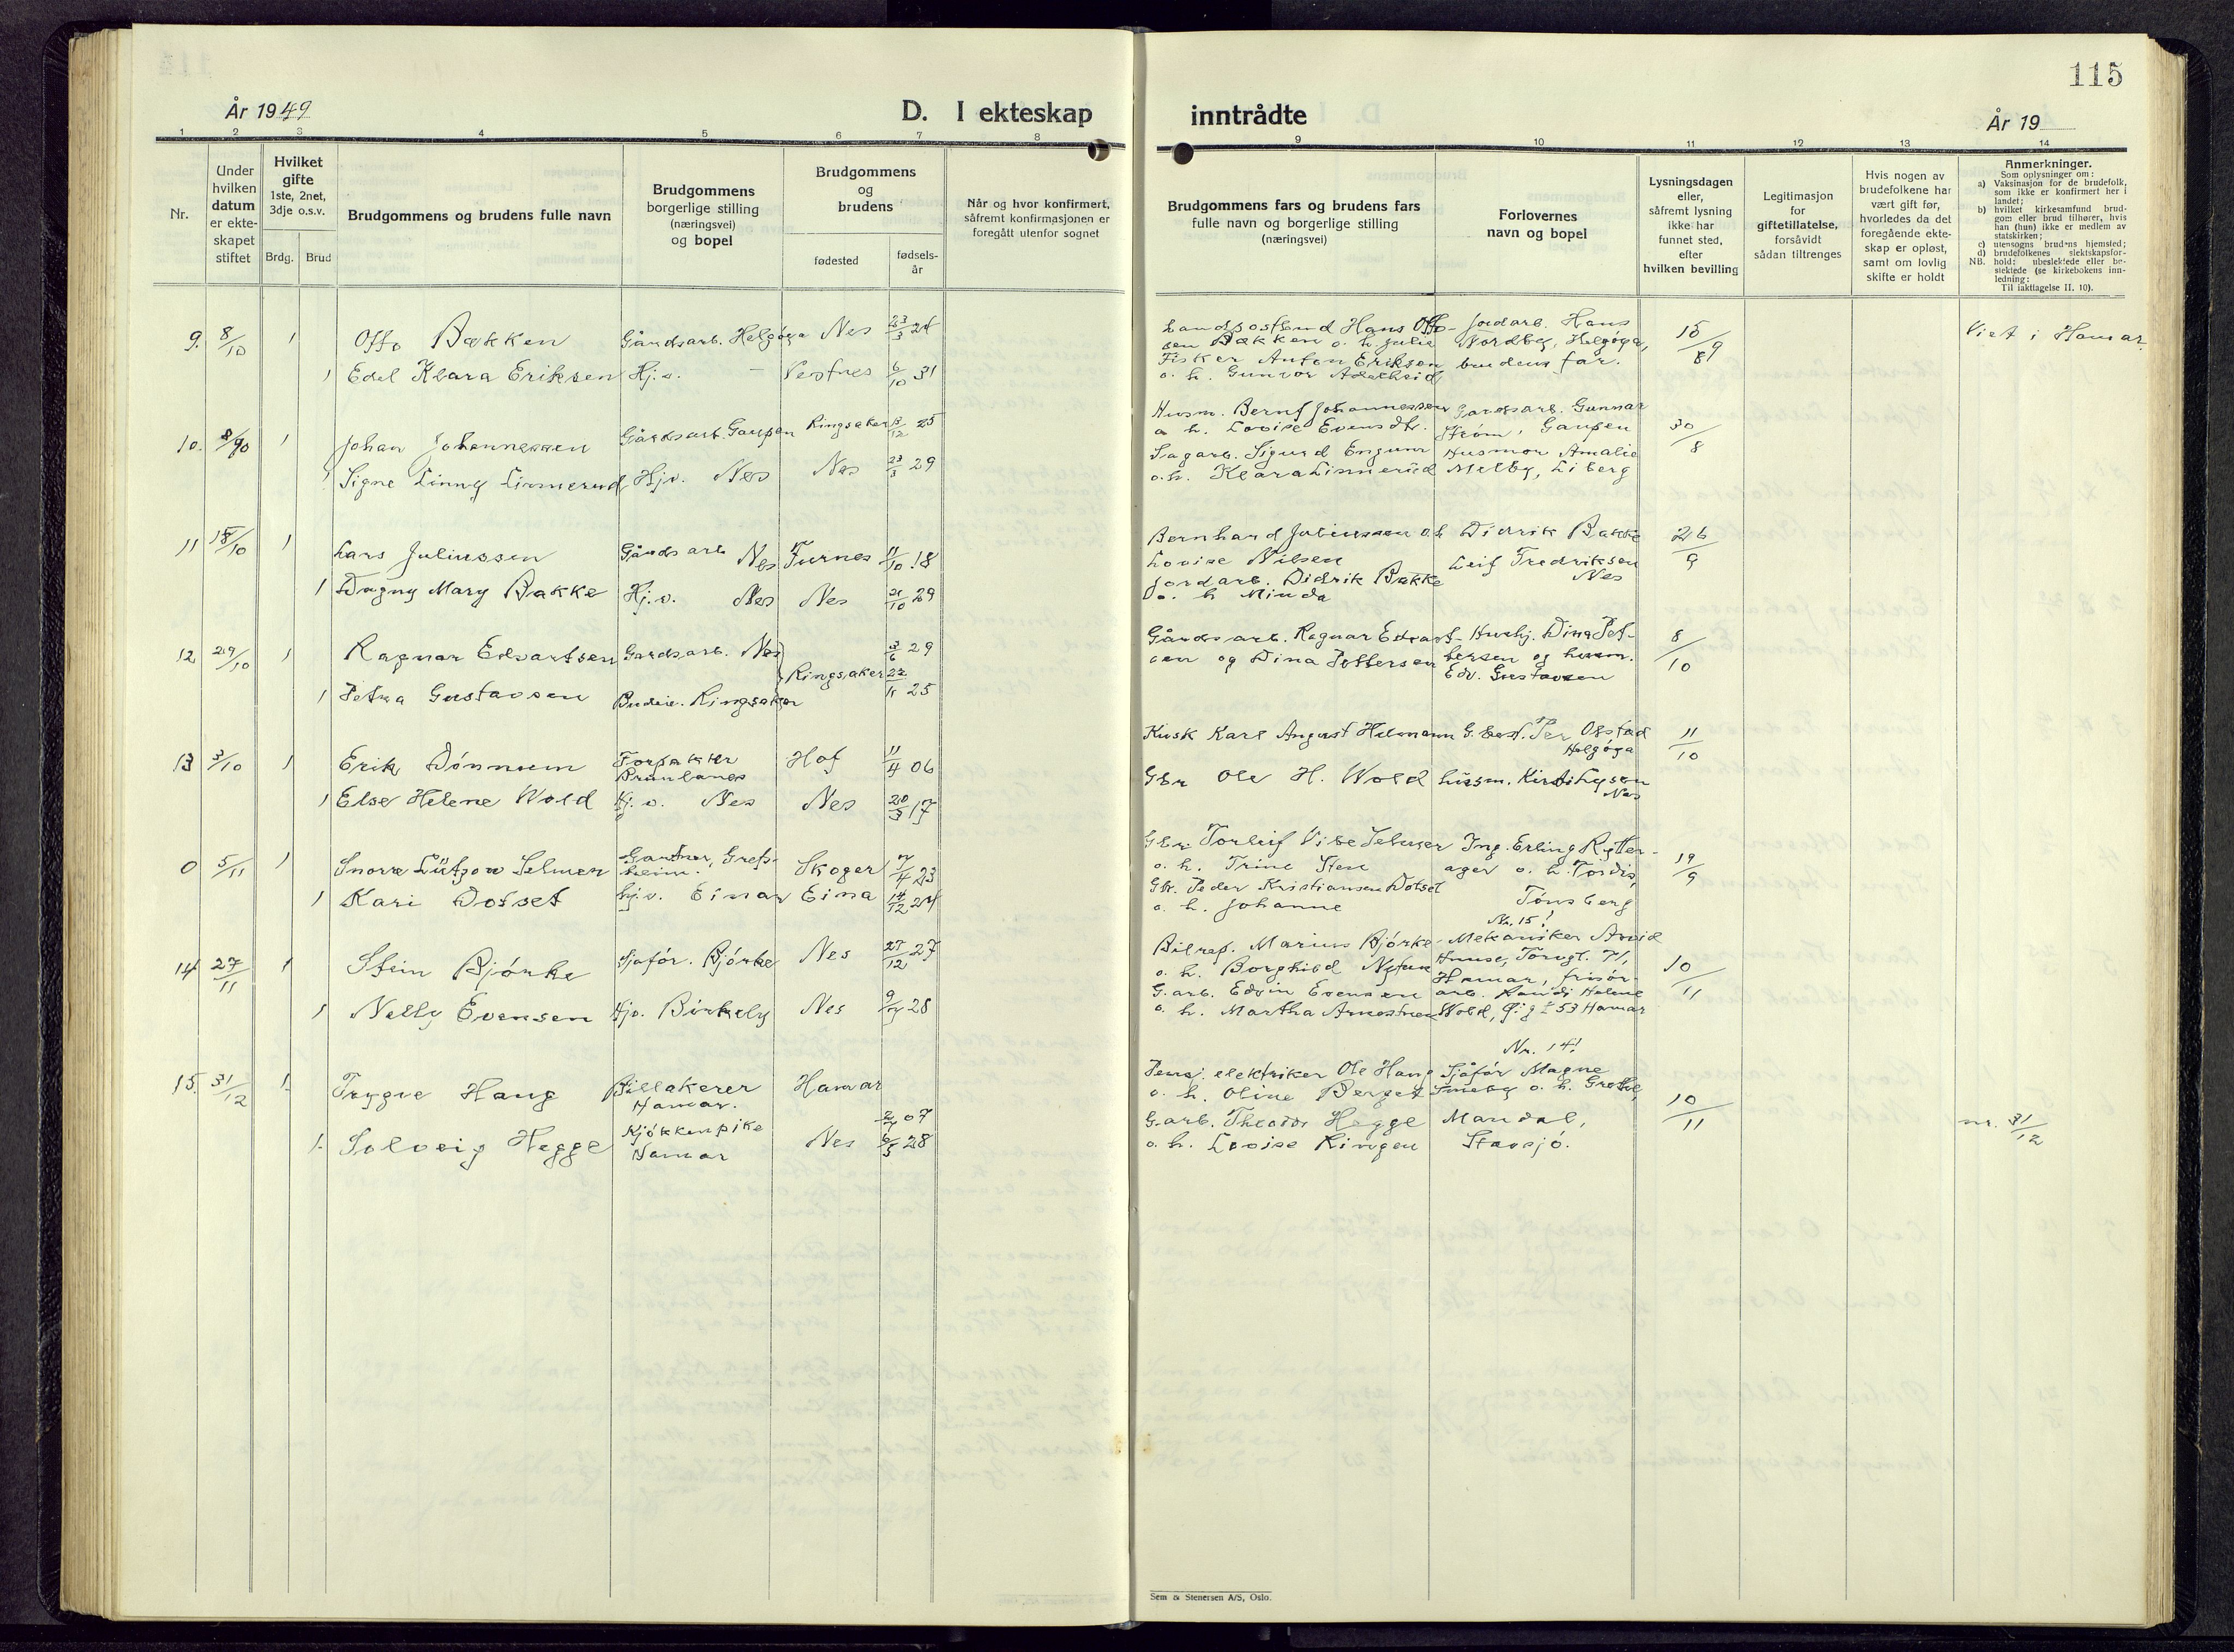 115
År 1949
D. I ekteskap
inntrådte
År 19
1 2 3 4 5 6 7 8 9 10 11 12 13 14
Nr.
Under
hvilken
datum
er ekte-
skapet
stiftet
Hvilket
gifte
1ste, 2net,
3dje o.s.v.
Brdg. Brud
Brudgommens og brudens fulle navn
Brudgommens
borgerlige stilling
(næringsvei)
og bopel
Brudgommens
og
brudens
fødested
fødsels-
år
Når og hvor konfirmert,
såfremt konfirmasjonen er
foregått utenfor sognet
Brudgommens fars og brudens fars
fulle navn og borgerlige stilling
(næringsvei)
Forlovernes
navn og bopel
Lysningsdagen
eller,
såfremt lysning
ikke har
funnet sted,
efter
hvilken bevilling
Legitimasjon
for
giftetillatelse,
forsåvidt
sådan tiltrenges
Hvis nogen av
brudefolkene har
vært gift før,
hvorledes da det
foregående ekte-
skap er opløst,
samt om lovlig
skifte er holdt
Anmerkninger.
Som oplysninger om:
a) Vaksinasjon for de brudefolk,
som ikke er konfirmert her i
landet;
b) hvilket kirkesamfund brud-
gom eller brud tilhører, hvis
han (hun) ikke er medlem av
statskirken;
c) utensogns brudens hjemsted;
d) brudefolkenes slektskapsfor-
NB. hold: ubeslektede eller be-
slektede (se kirkebokens inn-
ledning:
Til iakttagelse II. 10).
9. 8/10 1 Otto Bakken Gårdsarb. Helgøya Nes 23/3 24
1 Edel Klara Eriksen Hj.v. — Vestnes 6/10 31
Hans Otto-
sen Bakken o. h. Julie
Fisker Anton Eriksen
o. h. Gunvor
Jordarb. Hans
Nordby, Helgøya,
brudens far.
Viet i Hamar
10. 1 Johan Johannessen Gårdsarb. Gaupen Ringsaker 12 25
Signe Linny Linnerud Hj.v. Nes Nes 23/3 29
Husm. Bernt Johannessen
o h. Lovise
Sagarb. Sigurd Engum
o. h. Klara Linnerud
Gardsarb. Gunnar
Strøm, Gaupen
Husmor Amalie
Melby, Liberg
30/8
11 15/10 1 Lars Juliussen Gårdsarb Nes Furnes 11/10 18
1 Dagny Mary Bakke Hj.v. Nes Nes 21/10 29
Bernhard Juliussen o h
Lovise Nilsen
Jordarb. Didrik Bakke
o. h Minda
Didrik Bakke
Leif Fredriksen
Nes
26/9
12 29/10 1 Ragnar Edvartsen Gardsarb. Nes 3/6 29
Ringsaker
1 Petra Gustavsen Budeie. Ringsaker 25
Gårdsarb. Ragnar Edvart-
sen og Dina Pettersen
Hushj. Dina Pet-
tersen og husm.
Edv. Gustavsen
8/10
13 3/10 1 Erik Dønnum Forpakter Hof 11/4 06
Brunlanes
1 Else Helene Wold Hj.v. Nes Nes 20/3 17
Kusk Karl August
Gbr Ole H. Wold
Per Opstad
Helgøya
husm. Kirsti Lysen
Nes
11/10
0 5/11 1 Snorre Lützow Selmer Gartner, Grefs-
heim. Skoger 7/4 23
1 Kari Dotset hj.v. Einar Eina 14/12 24
Gbr Torleif Vibe Selmer
o. h. Trine Sten
Gbr. Peder Kristiansen Dotset
o. h. Johanne
Ing. Erling Rytter-
ager o. h. Tordis,
Tønsberg
19/9
Nr. 15!
14 27/11 1 Stein Bjørke Sjåfør. Bjørke Nes 27/12 27
1 Nelly Evensen Hjv. Birkely Nes 28
Bilrep. Marius Bjørke
o. h. Borghild
G.arb. Edvin Evensen
o. h. Martha
Mekaniker Arvid
Huuse, Torvgt. 71,
Hamar, frisør-
arb. Randi Helene
Wold, 53 Hamar
10/11
Nr. 14!
15. 31/12 1. Trygve Haug Billakerer Hamar
Hamar. 07
1. Solveig Hegge Kjøkkenpike Nes 28
Hamar
Pensj. elektriker Ole Haug
o. h. Oline Berget
G.arb. Theodor Hegge
o. h. Lovise Ringen
Sjåfør Magne
Smeby o. h. Grethe,
Mandal,
Stavsjø.
10/11
31/12
Sem & Stenersen A/S, Oslo.